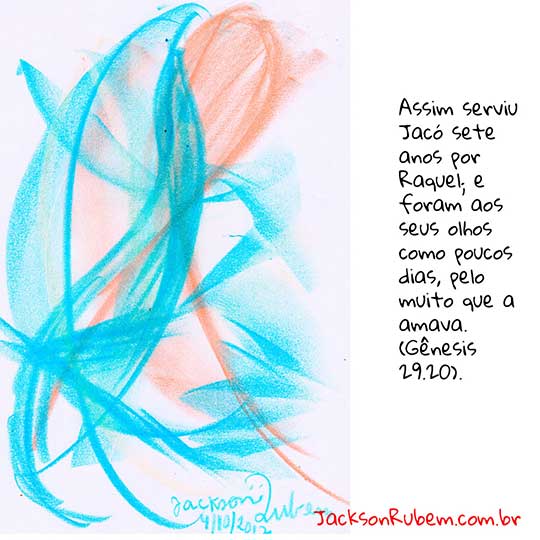 Assim serviu
Jacó sete
anos por
Raquel; e
foram aos
seus olhos
como poucos
dias, pelo
muito que a
amava.
(Gênesis
29.20).
Jackson Rubem
4/10/2012
JacksonRubem.com.br